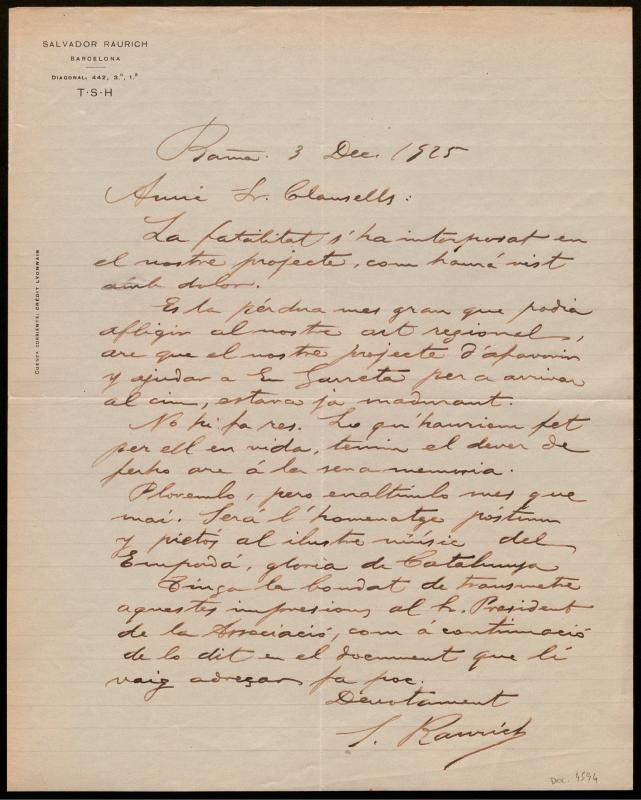 SALVADOR RAURICH
BARCELONA
DIAGONAL, 442, 3.º, 1.ª
T·S·H
CUENTA CORRIENTE: CRÉDIT LYONNAIS
Barna. 3 Dec. 1925
Amic Sr. Clausells:
La fatalitat s'ha interposat en
el nostre projecte, com haurá vist
amb dolor.
Es la pérdua mes gran que podia
afligir al nostre art regional,
are que el nostre projecte d'afavorir
y ajudar a En Garreta per a arrivar
al cim, estava ja madurant.
No hi fa res. Lo qu'hauriem fet
per ell en vida, tenim el dever de
ferho are á la seva memoria.
Ploremlo, pero enaltimlo mes que
mai. Será l'homenatge póstum
y pietós al ilustre músic del
Empordá, gloria de Catalunya
Tinga la bondat de transmetre
aquestes impresions al Sr. President
de la Associació, com á continuació
de lo dit en el document que li
vaig adreçar fa poc.
Devotament
S. Raurich
DOC. 4594